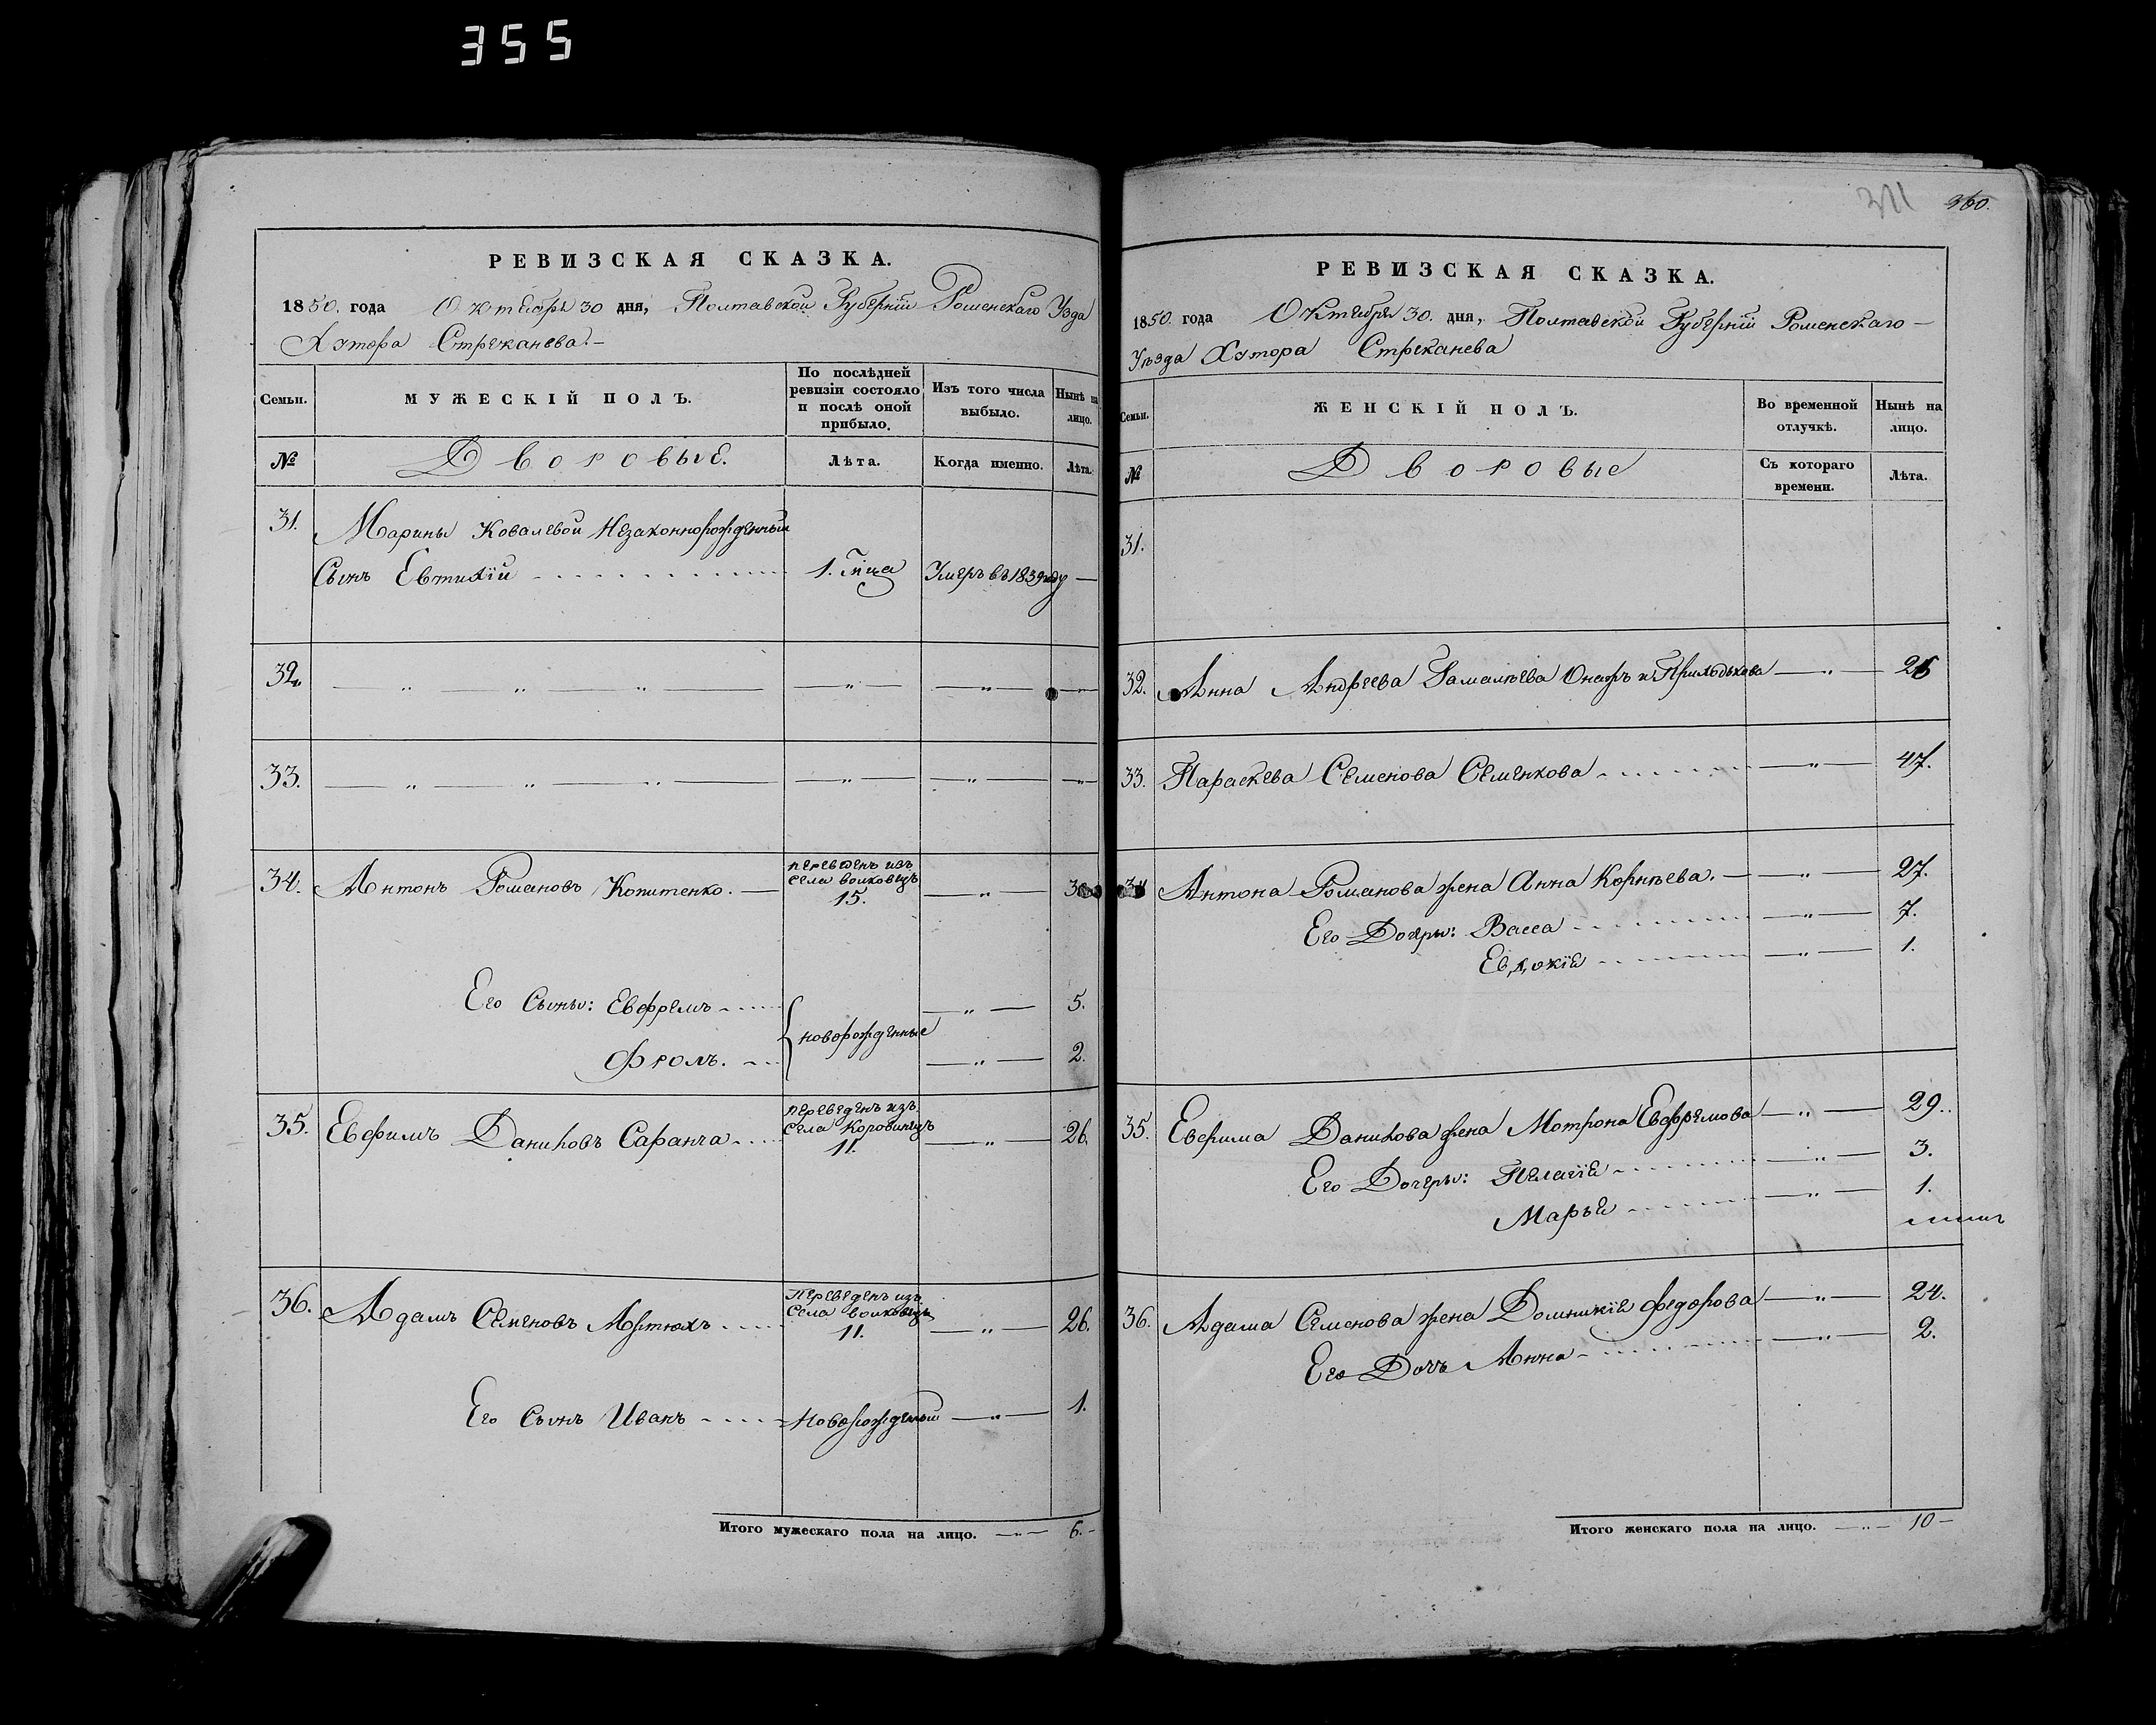 355
РЕВИЗСКАЯ СКАЗКА.
1850. года Октября 30 дня, Полтавской Губерніи Роменскаго Уѣзда
Хутора Стрекачева.
Семьи.
МУЖЕСКІЙ ПОЛЪ.
По послѣдней ревизіи состояло и послѣ оной прибыло.
Изъ того числа выбыло.
Нынѣ на лицо.
№
Дворовые.
Лѣта.
Когда именно.
Лѣта.
31. Марины Ковалевой Незаконнорожденный
Сынъ Евтихій 1. Мца Умеръ въ 1839 году —
32. — „ — „ — „ —
33. — „ — „ — „ —
34. Антонъ Романовъ Копитенко. — переведенъ изъ села волковецъ 15. — „ —
Его Сыны: Евфремъ новорожденные — „ — 5.
Фролъ. — „ — 2.
35. Евфимъ Даниловъ Саранча переведенъ изъ села Коровинецъ 11. — „ — 26.
36. Адамъ Семеновъ Артюхъ Переведенъ изъ Села волковецъ 11. — „ — 26.
Его Сынъ Иванъ Новорожденый — „ — 1.
Итого мужескаго пола на лицо. — „ — 6. —
311 360.
РЕВИЗСКАЯ СКАЗКА.
1850. года Октября 30. дня, Полтавской Губерніи Роменскаго —
Уѣзда Хутора Стрекачева
Семьи.
ЖЕНСКІЙ ПОЛЪ.
Во временной отлучкѣ.
Нынѣ на лицо.
№
Дворовые
Съ котораго времени.
Лѣта.
31.
32. Анна Андреева Гамалѣева Онажъ и Приходькова — „ — 26
33. Параскева Семенова Семенкова — „ — 47.
34 Антона Романова жена Анна Корнѣева. — „ — 27.
Его Дочеры: Васса — „ — 7.
Евдокія — „ — 1.
35. Евфима Данилова жена Мотрона Евфремова — „ — 29.
Его Дочеры: Пелагія — „ — 3.
Марья — „ — 1.
36. Адама Семенова жена Домникія Федорова — „ — 24.
Его Дочь Анна — „ — 2.
Итого женскаго пола на лицо. — „ — 10 —